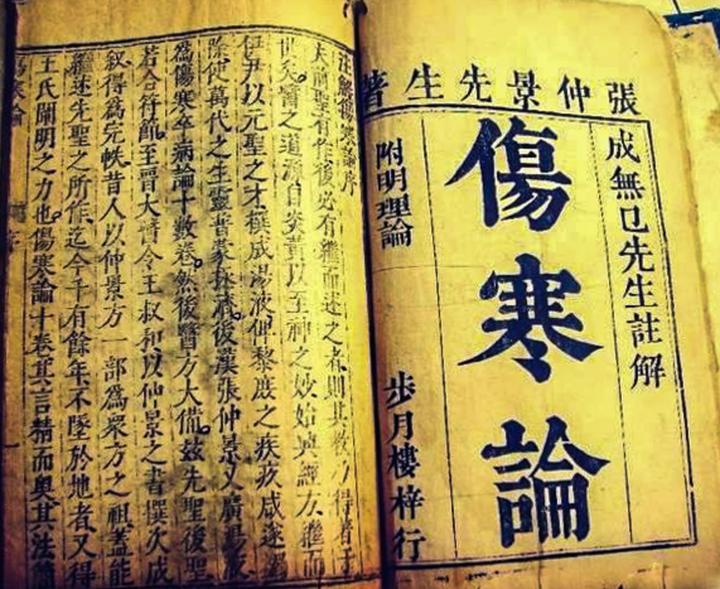 張仲景先生著
成無已先生註解
傷寒論
附明理論
步月樓梓行
注解傷寒論序
夫前聖有作後必有繼而述之者則其教乃得著于
世矣醫之道源自炎黃以至神之妙始興經方繼而
伊尹以元聖之才撰成湯液俾黎庶之疾疚咸遂蠲
除使萬代之生靈普蒙拯濟後漢張仲景又廣湯液
為傷寒卒病論十數卷。然後醫方大備。茲先聖後聖
若合符節。至晉大醫令王叔和以仲景之書撰次成
敘得為完帙昔人以仲景方一部為眾方之祖。蓋能
繼述先聖之所作。迄今千有餘年不墜於地者又得
王氏闡明之力也。傷寒論十卷其言精而奧其法簡
傷寒論 序